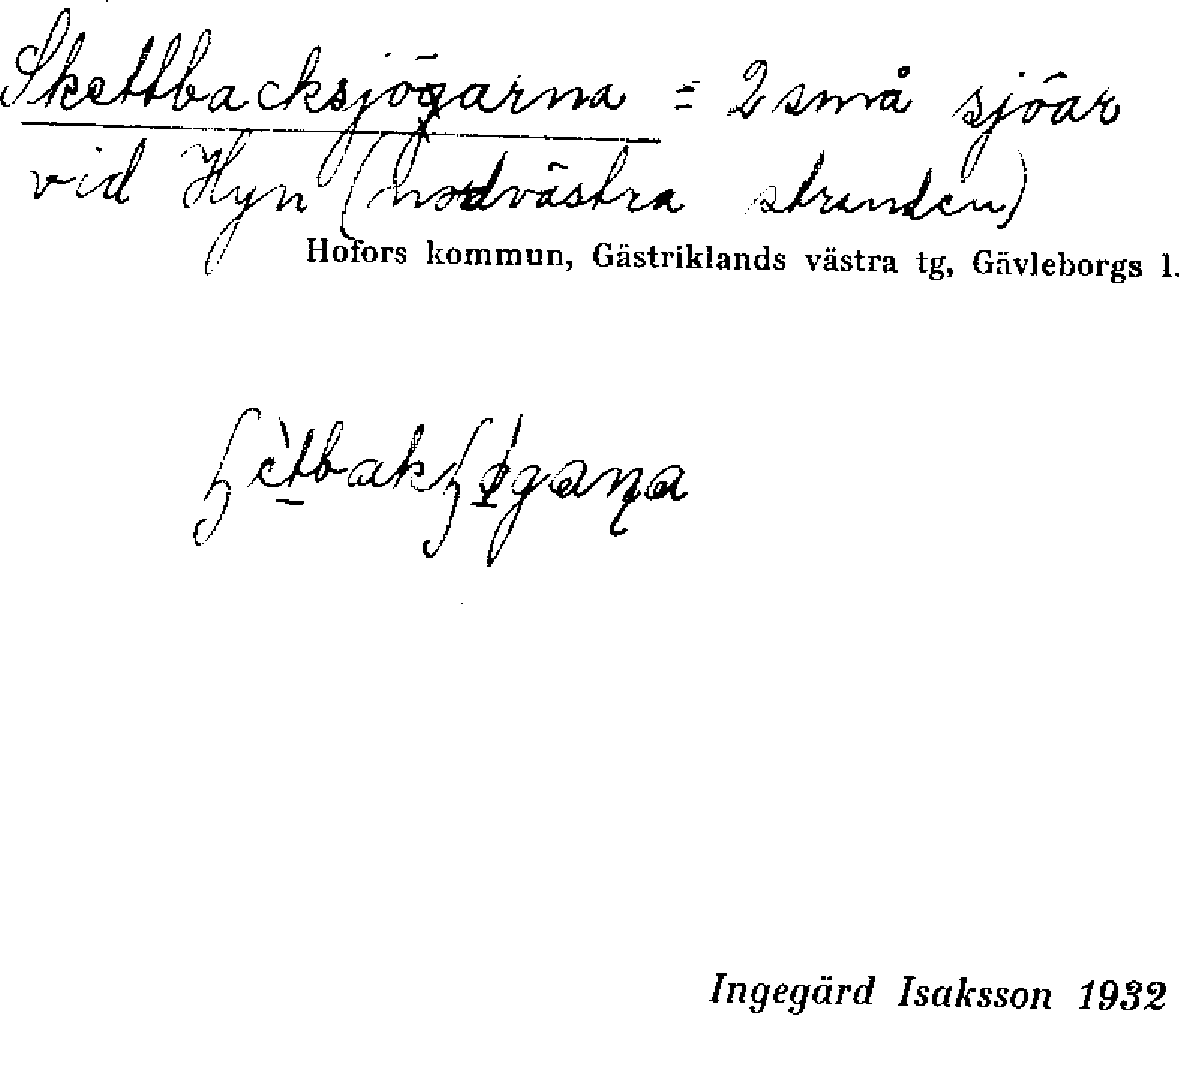 Skettbacksjögarna = 2 små sjöar
vid Hyn (nordvästra stranden)
Hofors kommun, Gästriklands västra tg, Gävleborgs l.
Ingegärd Isaksson 1932